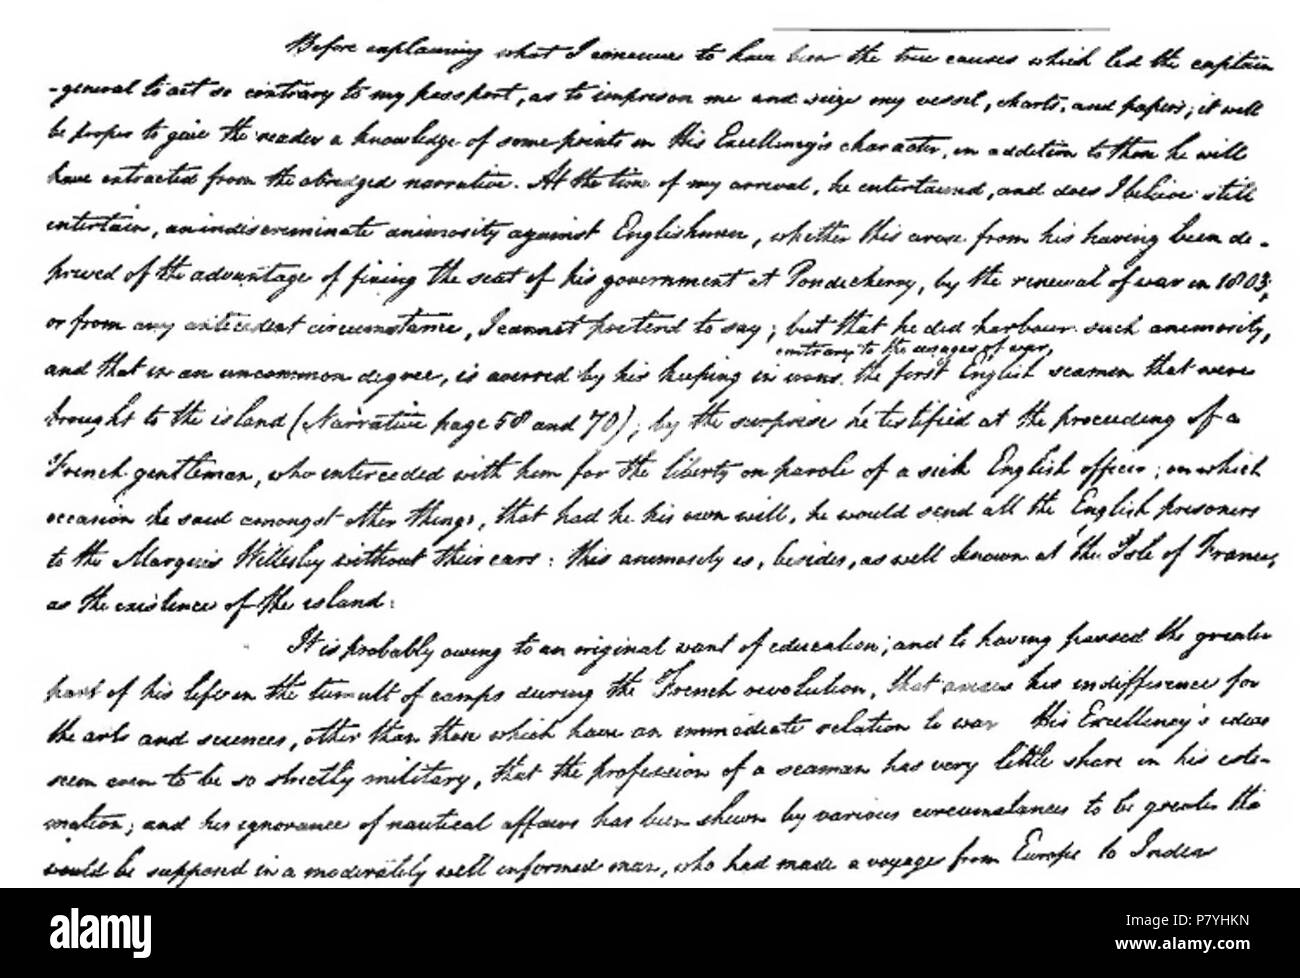 Before explaining what I conceive to have been the true causes which led the captain
-general to act so contrary to my passport, as to imprison me and seize my vessel, charts, and papers; it will
be proper to give the reader a knowledge of some points in His Excellency's character, in addition to them he will
have extracted from the abridged narrative. At the time of my arrival, he entertained, and does I believe still
entertain, an indiscriminate animosity against Englishmen, whether this arose from his having been de-
prived of the advantage of fixing the seat of his government at Pondicherry, by the renewal of war in 1803,
or from any antecedent circumstance, I cannot pretend to say; but that he did harbour such animosity,
contrary to the usages of war,
and that in an uncommon degree, is averred by his keeping in irons the first English seamen that were
brought to the island (Narrative page 58 and 70); by the surprise he testified at the proceeding of a
French gentleman, who interceded with him for the liberty on parole of a sick English officer; on which
occasion he said amongst other things, that had he his own will, he would send all the English prisoners
to the Marquis Wellesley without their ears: this animosity is, besides, as well known at the Isle of France,
as the existence of the island.
It is probably owing to an original want of education; and to having passed the greater
part of his life in the tumult of camps during the French revolution, that arises his indifference for
the arts and sciences, other than those which have an immediate relation to war His Excellency's ideas
seem even to be so strictly military, that the profession of a seaman has very little share in his esti-
mation; and his ignorance of nautical affairs has been shewn by various circumstances to be greater than
would be supposed in a moderately well informed man, who had made a voyage from Europe to India
alamy
alamy stock photo
P7YHKN
www.alamy.com